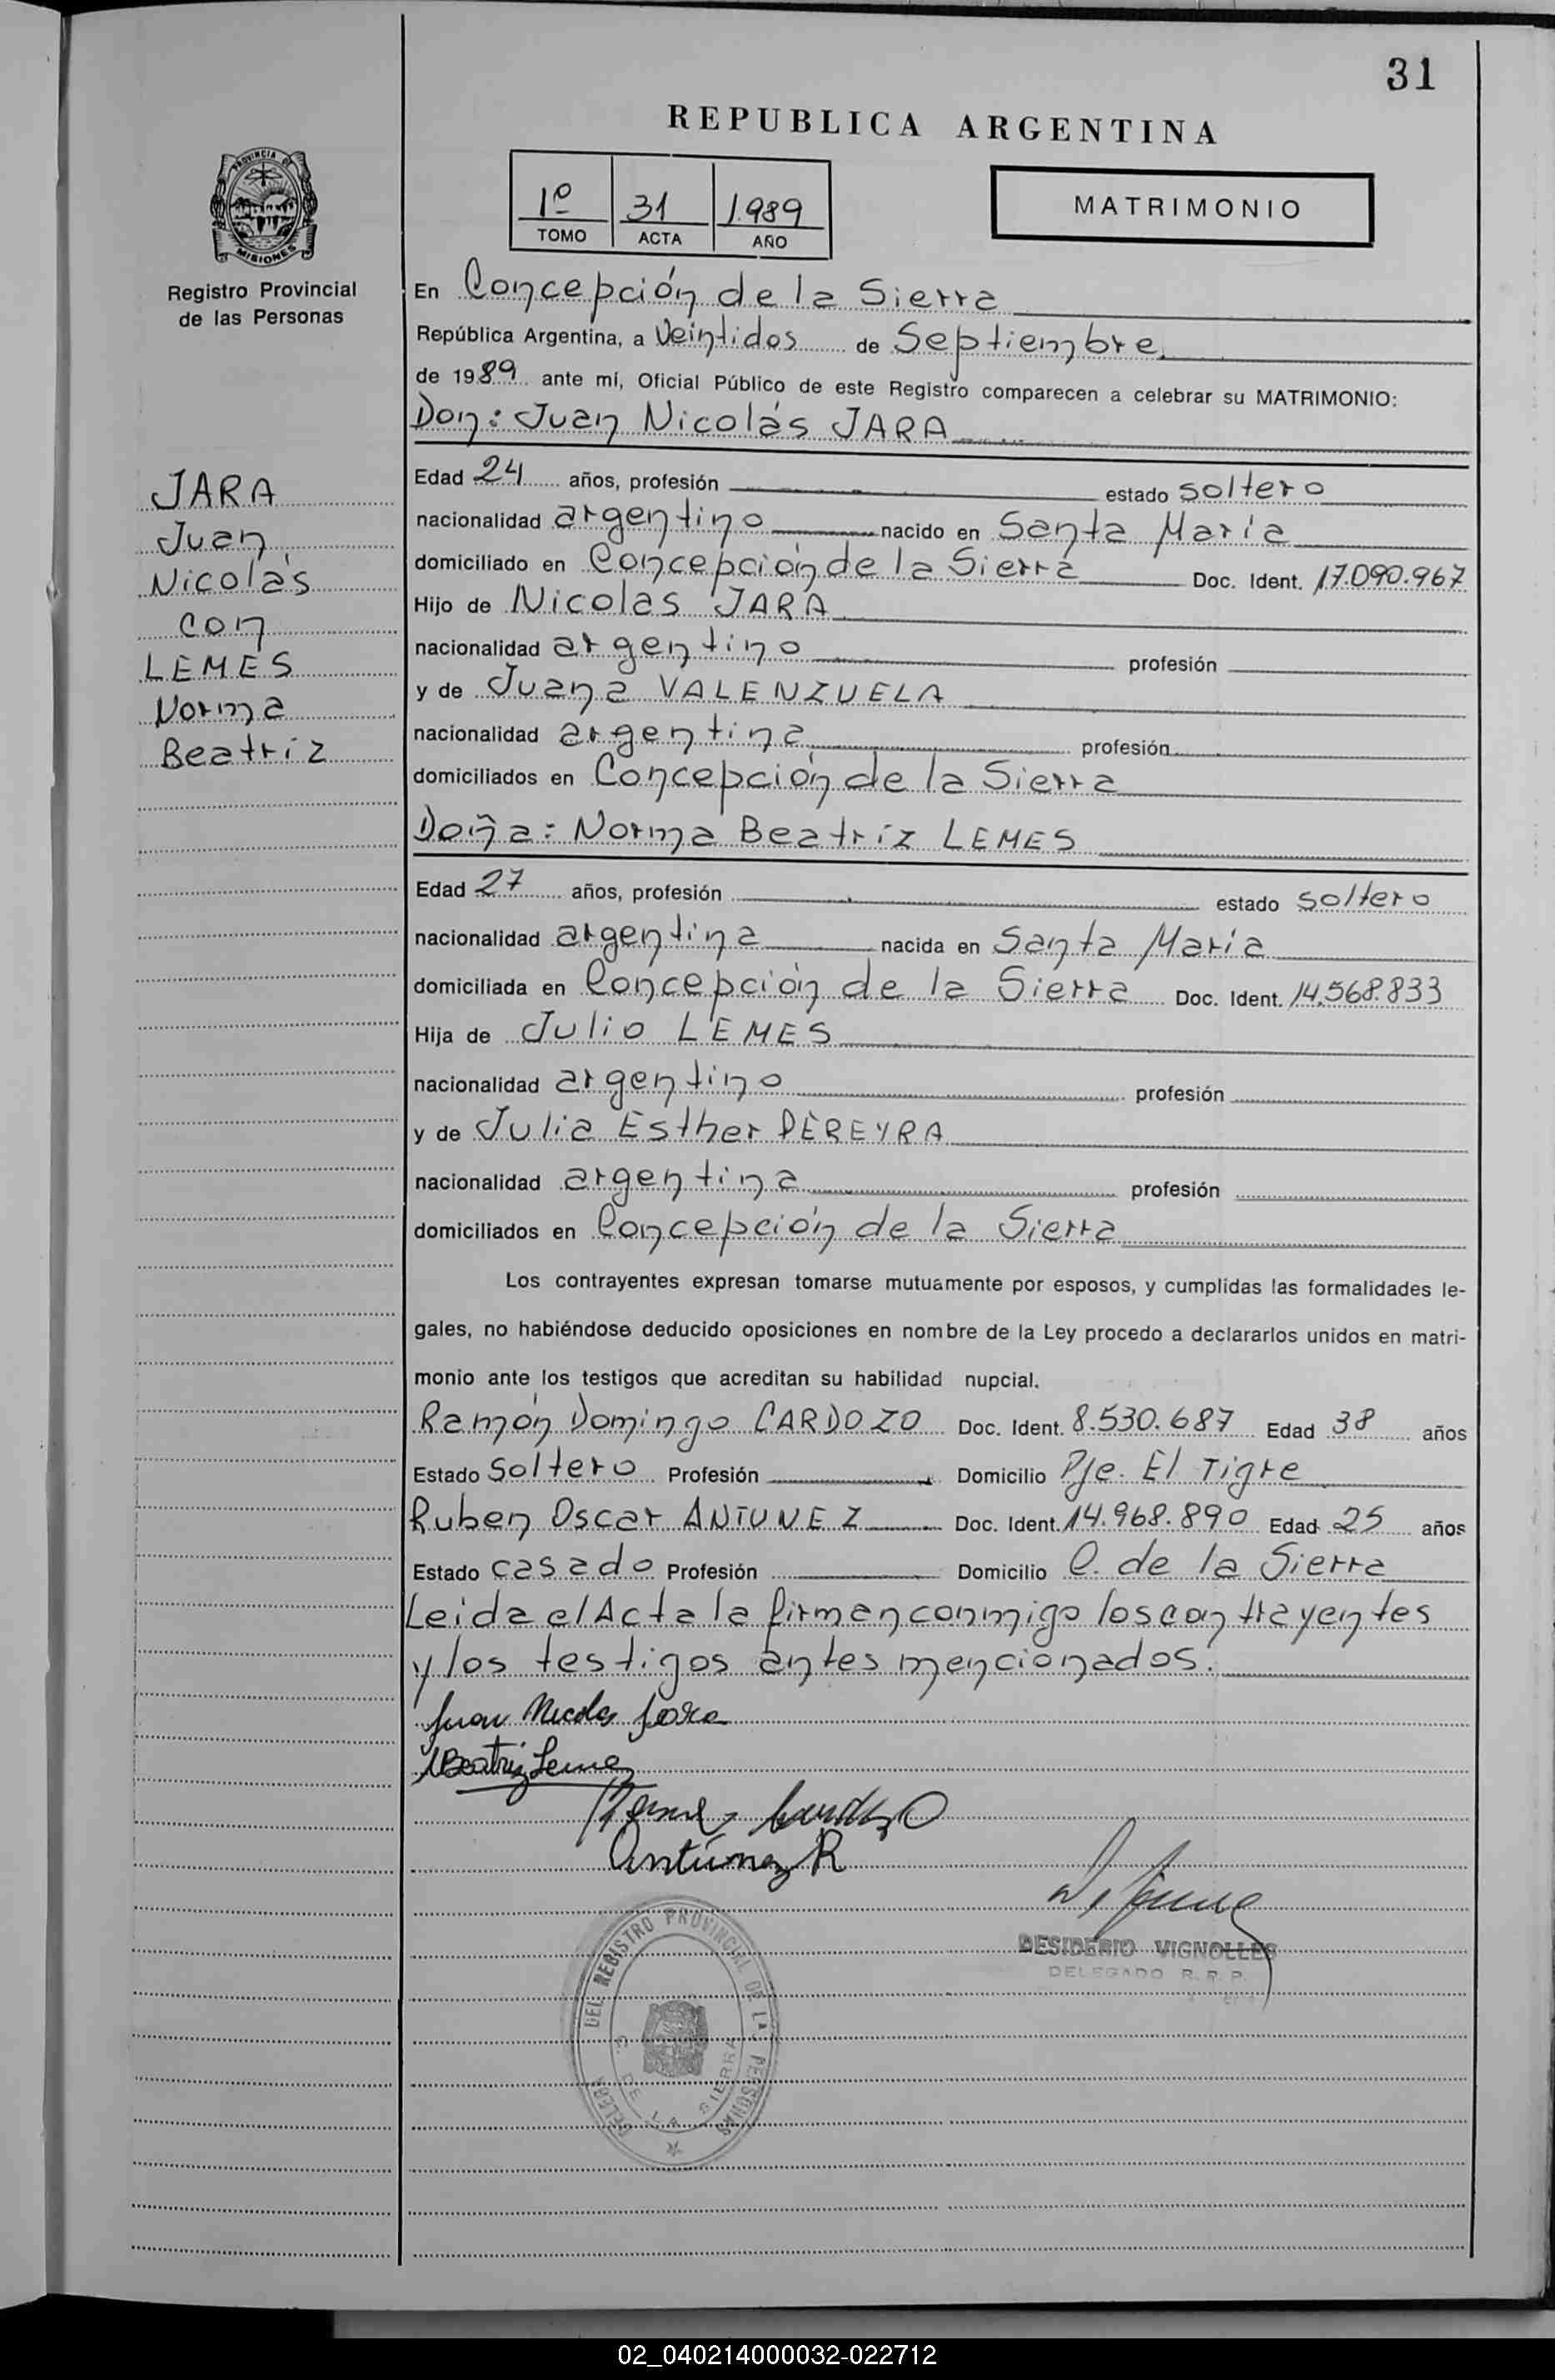 31
REPUBLICA ARGENTINA
1º 31 1.989
TOMO ACTA AÑO
MATRIMONIO
PROVINCIA DE
MISIONES
Registro Provincial
de las Personas
En Concepción de la Sierra
República Argentina, a Veintidos de Septiembre
de 1989 ante mí, Oficial Público de este Registro comparecen a celebrar su MATRIMONIO:
Don: Juan Nicolás JARA
JARA
Juan
Nicolás
con
LEMES
Norma
Beatríz
Edad 24 años, profesión estado soltero
nacionalidad argentino nacido en Santa María
domiciliado en Concepción de la Sierra Doc. Ident. 17.090.967
Hijo de Nicolas JARA
nacionalidad argentino profesión
y de Juana VALENZUELA
nacionalidad argentina profesión
domiciliados en Concepción de la Sierra
Doña: Norma Beatríz LEMES
Edad 27 años, profesión estado soltero
nacionalidad argentina nacida en Santa María
domiciliada en Concepción de la Sierra Doc. Ident. 14.568.833
Hija de Julio LEMES
nacionalidad argentino profesión
y de Julia Esther PEREYRA
nacionalidad argentina profesión
domiciliados en Concepción de la Sierra
Los contrayentes expresan tomarse mutuamente por esposos, y cumplidas las formalidades le-
gales, no habiéndose deducido oposiciones en nombre de la Ley procedo a declararlos unidos en matri-
monio ante los testigos que acreditan su habilidad nupcial.
Ramón Domingo CARDOZO Doc. Ident. 8.530.687 Edad 38 años
Estado Soltero Profesión Domicilio Pje. El Tigre
Ruben Oscar ANTUNEZ Doc. Ident. 14.968.890 Edad 25 años
Estado casado Profesión Domicilio C. de la Sierra
Leida el Acta la firman conmigo los contrayentes
y los testigos antes mencionados.
Juan Nicolas Jara
NBeatriz Lemes
Cardozo
Antúnez R
DESIDERIO VIGNOLLES
DELEGADO R. P. P.
DEL REGISTRO PROVINCIAL DE LA PERSONAS
C. DE LA SIERRA
02_040214000032-022712